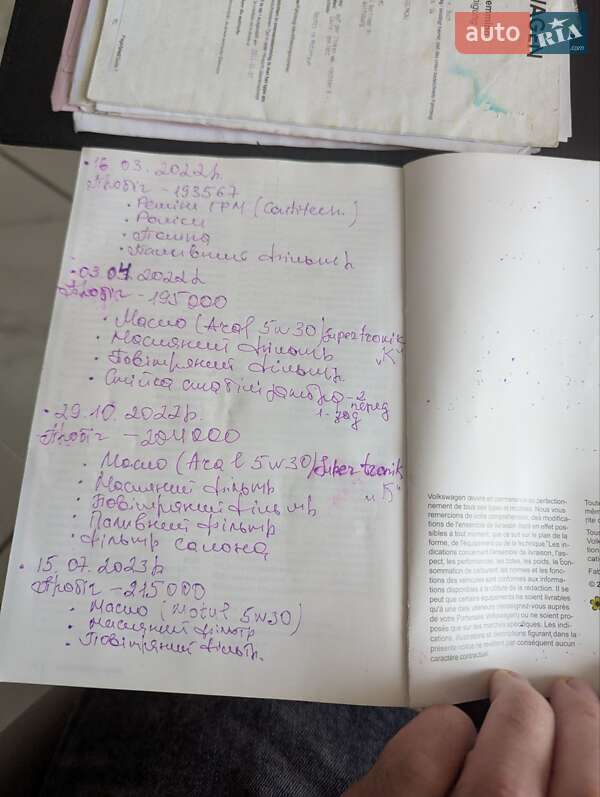 auto RIA.com
• 16 03. 2022р.
Пробіг - 193567
• Ремінь ГРМ (Contitech.)
• Ролики
• Помпа
• Паливний фільтр
• 03.04.2022р
Пробіг - 195000
• Масло (Aral 5w30/Supertronik "K"
• Масляний фільтр
• Повітряний фільтр
• Стійка стабілізатора - 2 перед
1 - зад
• 29.10.2022р.
Пробіг - 204000
• Масло (Aral 5w30/Supertronik "K"
• Масляний фільтр
• Повітряний фільтр
• Паливний фільтр
• Фільтр салона
• 15.07.2023р
Пробіг - 215000
• Масло (Motul 5w30)
• Масляний фільтр
• Повітряний фільтр.
Volkswagen œuvre en permanence au perfection-
nement de tous ses types et modèles. Nous vous
remercions de votre compréhension, des modifica-
tions de l'ensemble de livraison étant en effet pos-
sibles à tout moment, que ce soit sur le plan de la
forme, de l'équipement ou de la technique. Les in-
dications concernant l'ensemble de livraison, l'as-
pect, les performances, les cotes, les poids, la con-
sommation de carburant, les normes et les fonc-
tions des véhicules sont conformes aux informa-
tions disponibles à la clôture de la rédaction. Il se
peut que certains équipements ne soient livrables
qu'à une date ultérieure (renseignez-vous auprès
de votre Partenaire Volkswagen) ou ne soient pro-
posés que sur des marchés spécifiques. Les indi-
cations, illustrations et descriptions figurant dans la
présente notice ne revêtent par conséquent aucun
caractère contractuel.
Toute
même
rite d
Tous
vœu
catio
Fab
© 2